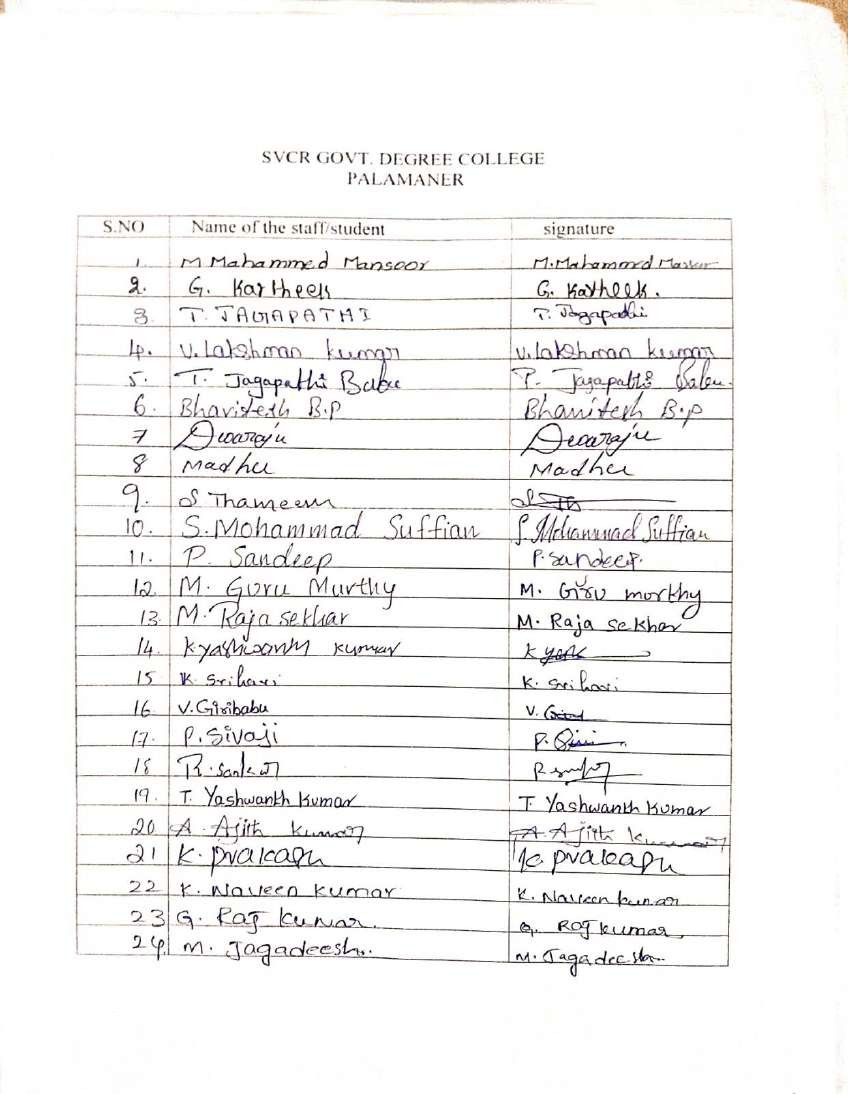 SVCR GOVT. DEGREE COLLEGE
PALAMANER
S.NO Name of the staff/student signature
1. M Mahammed Mansoor M. Mahammed
2. G. Kartheek G. Kartheek.
3. T. JAGAPATHI T. Jagapathi
4. V. Lakshman kumar V. lakshman kumar
5. T. Jagapathi Babu T. Jagapathi Babu.
6. Bhavitesh B.P Bhavitesh B.P
7 Devaraju Devaraju
8 Madhu Madhu
9. S Thameem
10. S. Mohammad Suffian S. Mohammad Suffian
11. P. Sandeep P. Sandeep.
12. M. Guru Murthy M. Guru morthy
13. M. Raja sekhar M. Raja sekhar
14. K yashwanth kumar K
15 K. Srihari K. Srihari
16 V. Giribabu V.
17. P. Sivaji P.
18 R.
19. T. Yashwanth Kumar T. Yashwanth Kumar
20. A. Ajith kumar A. Ajith kumar
21 K. prakash K. prakash
22 K. Naveen kumar K. Naveen kumar
23 G. Raj kumar. G. Raj kumar
24. M. Jagadeesh. M. Jagadeesh